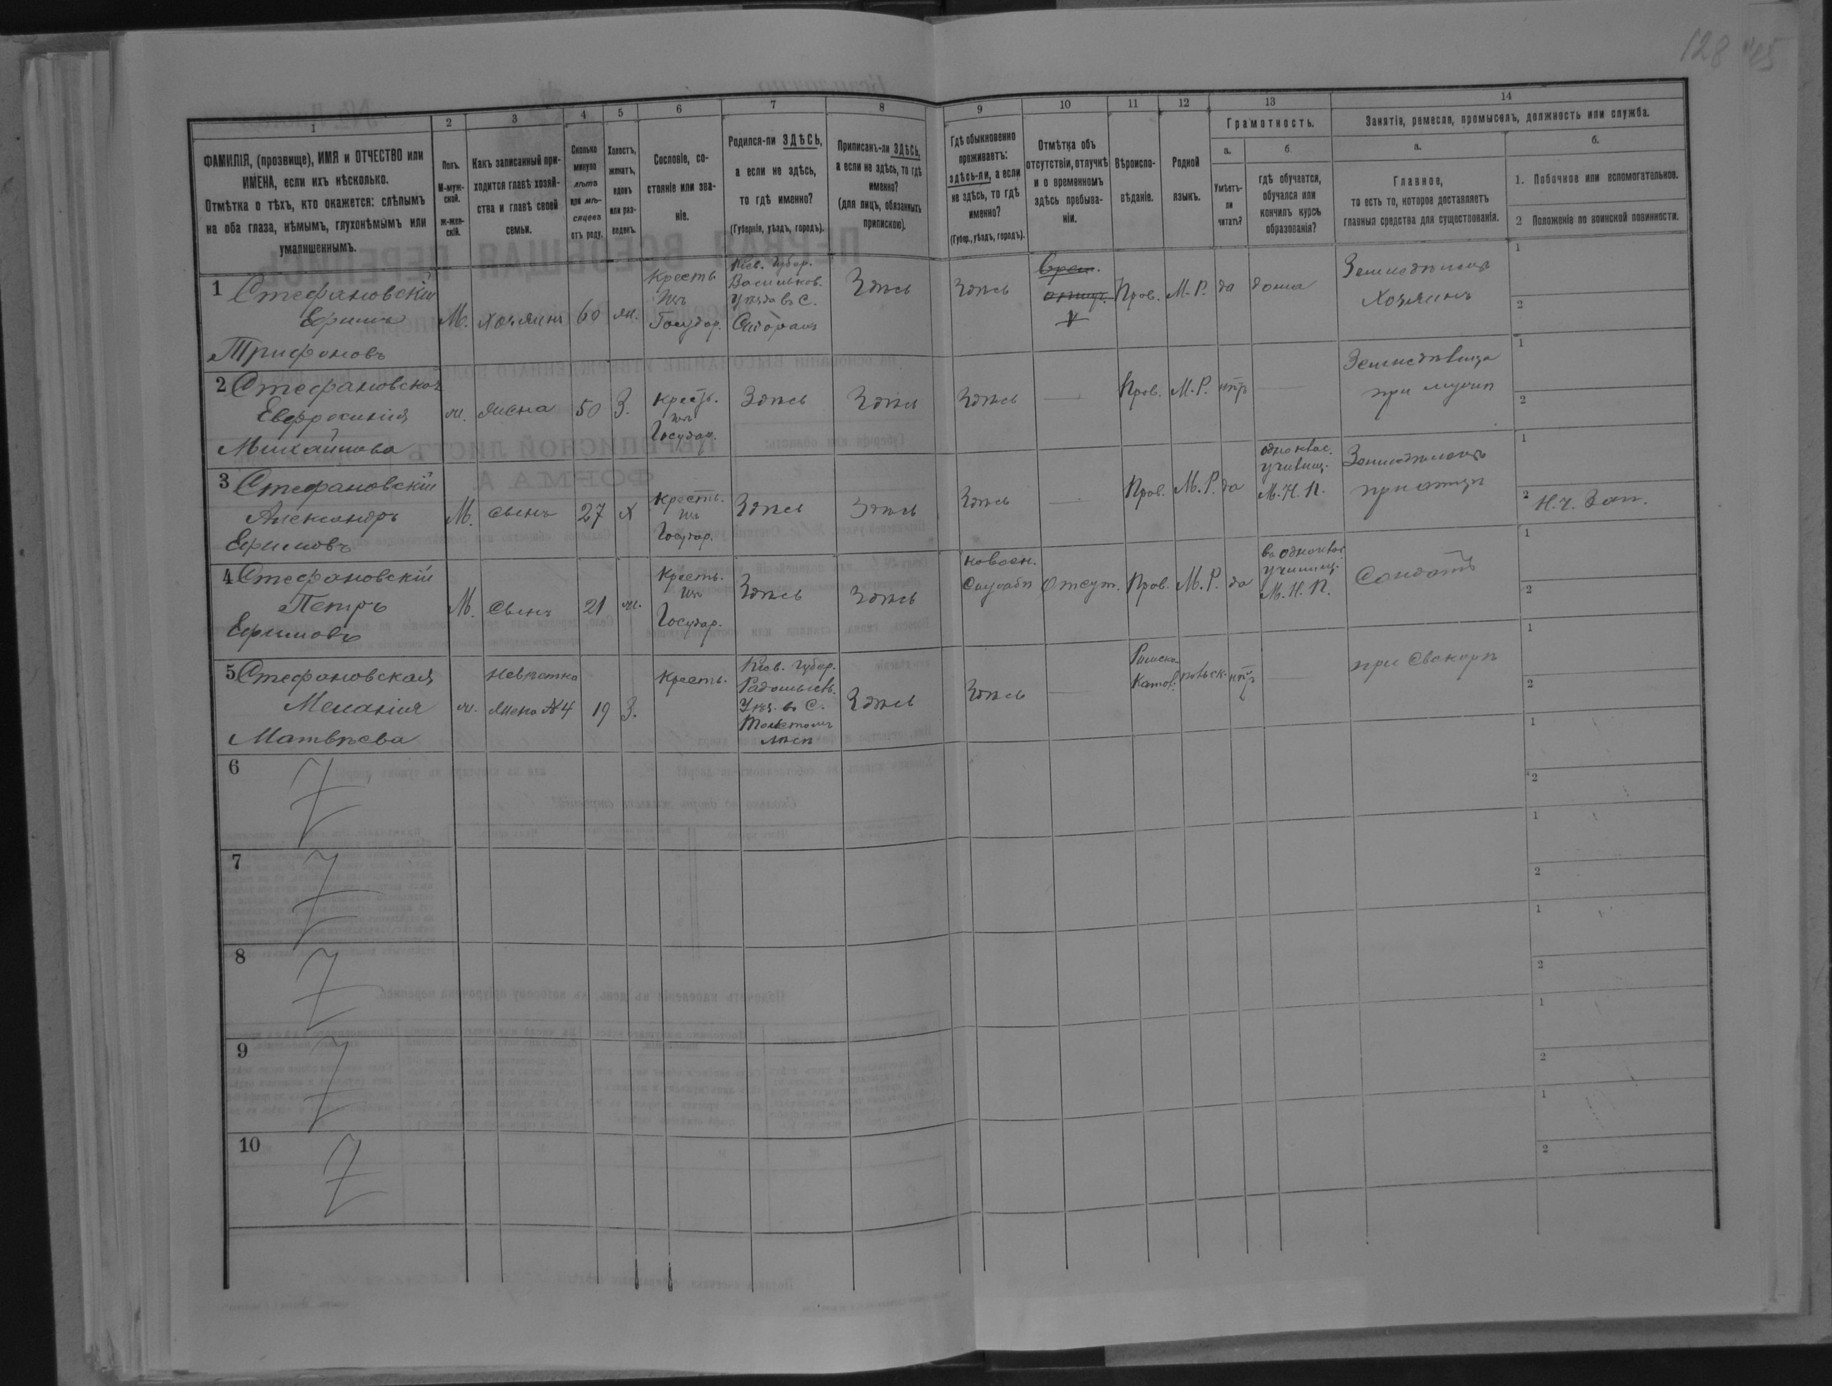 128 415
1
2
3
4
5
6
7
8
9
10
11
12
13
14
ФАМИЛІЯ, (прозвище), ИМЯ и ОТЧЕСТВО или
ИМЕНА, если ихъ нѣсколько.
Отмѣтка о тѣхъ, кто окажется: слѣпымъ
на оба глаза, нѣмымъ, глухонѣмымъ или
умалишеннымъ.
Полъ.
М-муж-
ской.
ж-жен-
скій.
Какъ записанный при-
ходится главѣ хозяй-
ства и главѣ своей
семьи.
Сколько
минуло
лѣтъ
или мѣ-
сяцевъ
отъ роду.
Холостъ,
женатъ,
вдовъ
или раз-
веденъ.
Сословіе, со-
стояніе или зва-
ніе.
Родился-ли ЗДѢСЬ,
а если не здѣсь,
то гдѣ именно?
(Губернія, уѣздъ, городъ).
Приписанъ-ли ЗДѢСЬ,
а если не здѣсь, то гдѣ
именно?
(для лицъ, обязанныхъ
припискою).
Гдѣ обыкновенно
проживаетъ:
здѣсь-ли, а если
не здѣсь, то гдѣ
именно?
(Губер., уѣздъ, городъ).
Отмѣтка объ
отсутствіи, отлучкѣ
и о временномъ
здѣсь пребыва-
ніи.
Вѣроиспо-
вѣданіе.
Родной
языкъ.
Грамотность.
а.
Умѣетъ-
ли
читать?
б
гдѣ обучается,
обучался или
кончилъ курсъ
образованія?
Занятія, ремесло, промыселъ, должность или служба.
а.
Главное,
то есть то, которое доставляетъ
главныя средства для существованія.
б.
1. Побочное или вспомогательное.
2 Положеніе по воинской повинности.
1 Стефановскій
Ефимъ
Трифоновъ
М.
хозяинъ
60
жн.
Кресть.
изъ
Государ.
Кіев. Губер.
Васильков.
Уѣзда в с.
Здѣсь
Здѣсь
Врем.
Прав.
М. Р.
да
дома
Земледѣлецъ
Хозяинъ
1
2
2 Стефановская
Евфросинія
Михайлова
ж.
жена
50
З.
Кресть.
изъ
Государ.
Здѣсь
Здѣсь
Здѣсь
—
Прав.
М. Р.
нѣтъ
—
Земледѣлица
при мужѣ
1
2
3 Стефановскій
Александръ
Ефимовъ
М.
сынъ
27
Х
Кресть.
изъ
Государ.
Здѣсь
Здѣсь
Здѣсь
—
Прав.
М. Р.
да
одноклас.
училищ.
М. Н. П.
Земледѣлецъ
при отцѣ
1
2 Н. Ч. Зап.
4 Стефановскій
Петръ
Ефимовъ
М.
сынъ
21
ж.
Кресть.
изъ
Государ.
Здѣсь
Здѣсь
на воен.
службѣ
Отсут.
Прав.
М. Р.
да
въ одноклас.
училищ.
М. Н. П.
Солдатъ
1
2
5 Стефановская
Меланія
Матвѣева
ж.
невѣстка
жена №4
19
З.
Кресть.
Кіев. Губер.
Радомысл.
Уѣз. в с.
Толстомъ
лѣсѣ
Здѣсь
Здѣсь
—
Римско
Катол.
польск.
нѣтъ
—
при свекорѣ
1
2
6
1
2
7
1
2
8
1
2
9
1
2
10
1
2